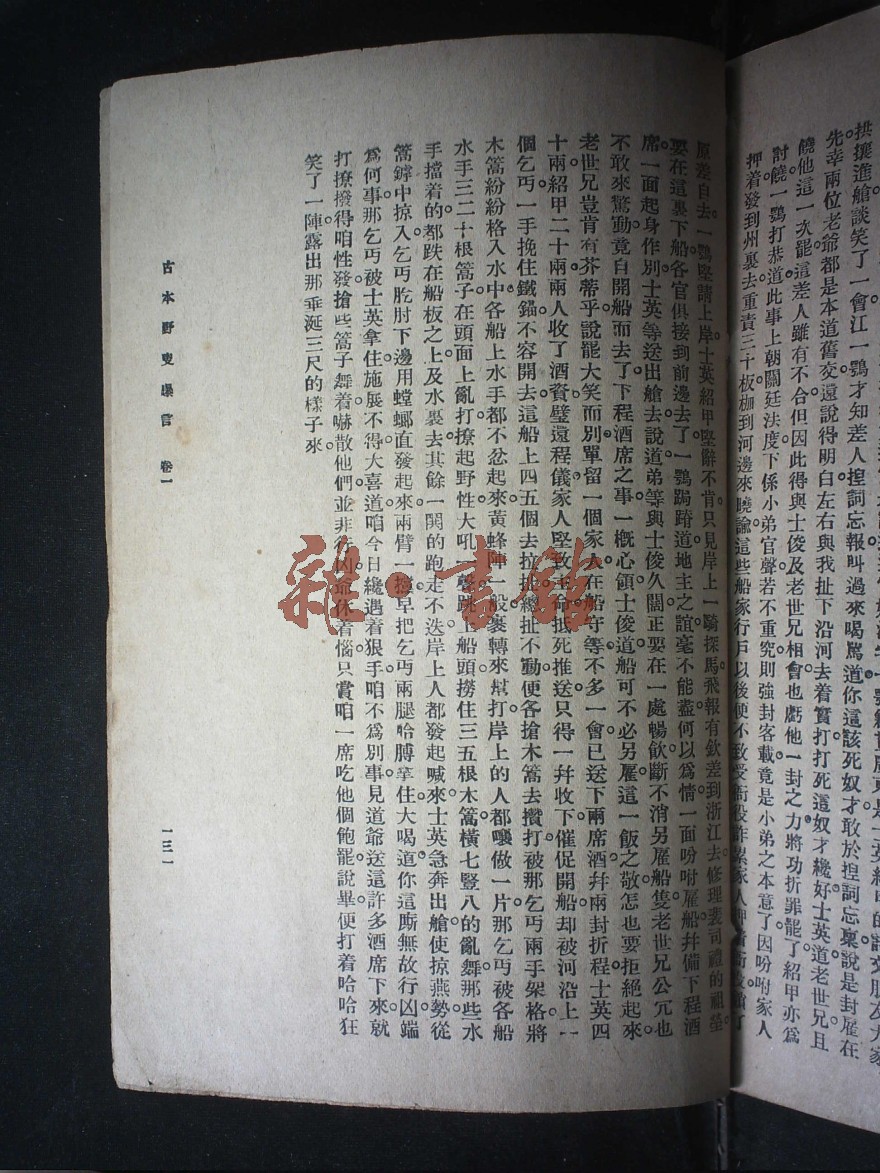 拱攘進艙談笑了一會江一鶚才知差人揑詞忘報叫過來喝罵道你這該死奴才敢於揑詞忘稟說是封雇在
先幸兩位老爺都是本道舊交還說得明白左右與我扯下沿河去着實打打死這奴才纔好士英道老世兄且
饒他這一次罷這差人雖有不合但因此得與士俊及老世兄相會也虧他一封之力將功折罪罷了紹甲亦爲
討饒一鶚打恭道此事上朝關廷法度下係小弟官聲若不重究則強封客載竟是小弟之本意了因吩咐家人
押着發到州裏去重責三十板枷到河邊來曉諭這些船家行戶以後便不致受衙役詐累家人押着衙役
原差自去。一鶚堅請上岸。士英紹甲堅辭不肯只見岸上一騎探馬飛報有欽差到浙江去修理裴司禮的祖塋。
要在這裏下船各官俱接到前邊去了。一鶚跼蹐道地主之誼毫不能盡何以爲情一面吩咐雇船幷備下程酒
席。一面起身作別士英等送出艙去。說道弟等與士俊久闊正要在一處暢飲斷不消另雇船隻老世兄公冗也
不敢來驚動竟自開船而去了。下程酒席之事一概心領士俊道船可不必另雇這一飯之敬怎也要拒絕起來
老世兄豈肯有芥蒂乎說罷大笑而別單留一個家人在船守等不多一會已送下兩席酒幷兩封折程士英四
十兩紹甲二十兩兩人收了酒資璧還程儀家人堅致主命抵死推送只得一幷收下。催促開船却被河沿上一
個乞丐。一手挽住鐵錨不容開去這船上四五個去拉扯總扯不動便各搶木篙去攢打被那乞丐兩手架格將
木篙紛紛格入水中各船上水手都不忿起來黃蜂陣一般裹轉來幫打岸上的人都嚷做一片那乞丐被各船
水手三二十根篙子在頭面上亂打撩起野性大吼一聲跳上船頭撈住三五根木篙橫七豎八的亂舞那些水
手擋着的都跌在船板之上及水裏去。其餘一鬨的跑走不迭岸上人都發起喊來士英急奔出艙使掠燕勢從
篙鏬中掠入乞丐肐肘下邊用螳螂直發起來兩臂一擒早把乞丐兩腿哈膊拿住大喝道你這厮無故行凶端
爲何事那乞丐被士英拿住施展不得大喜道咱今日纔遇着狠手咱不爲別事見道爺送這許多酒席下來就
打撩撥得咱性發搶些篙子舞着嚇散他們並非行凶爺休着惱只賞咱一席吃他個飽罷說畢便打着哈哈狂
笑了一陣露出那垂涎三尺的樣子來。
古本野叟曝言 卷一
一三一
雜·書館